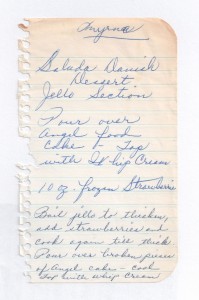 Myrna
Salada Danish
Dessert
Jello Section
Pour over
Angel food
Cake - Top
with whip Cream
10 oz frozen Strawberries
Boil jello to thicken,
add strawberries and
cook again till thick
Pour over broken pieces
of Angel cake - cook
Top with whip cream